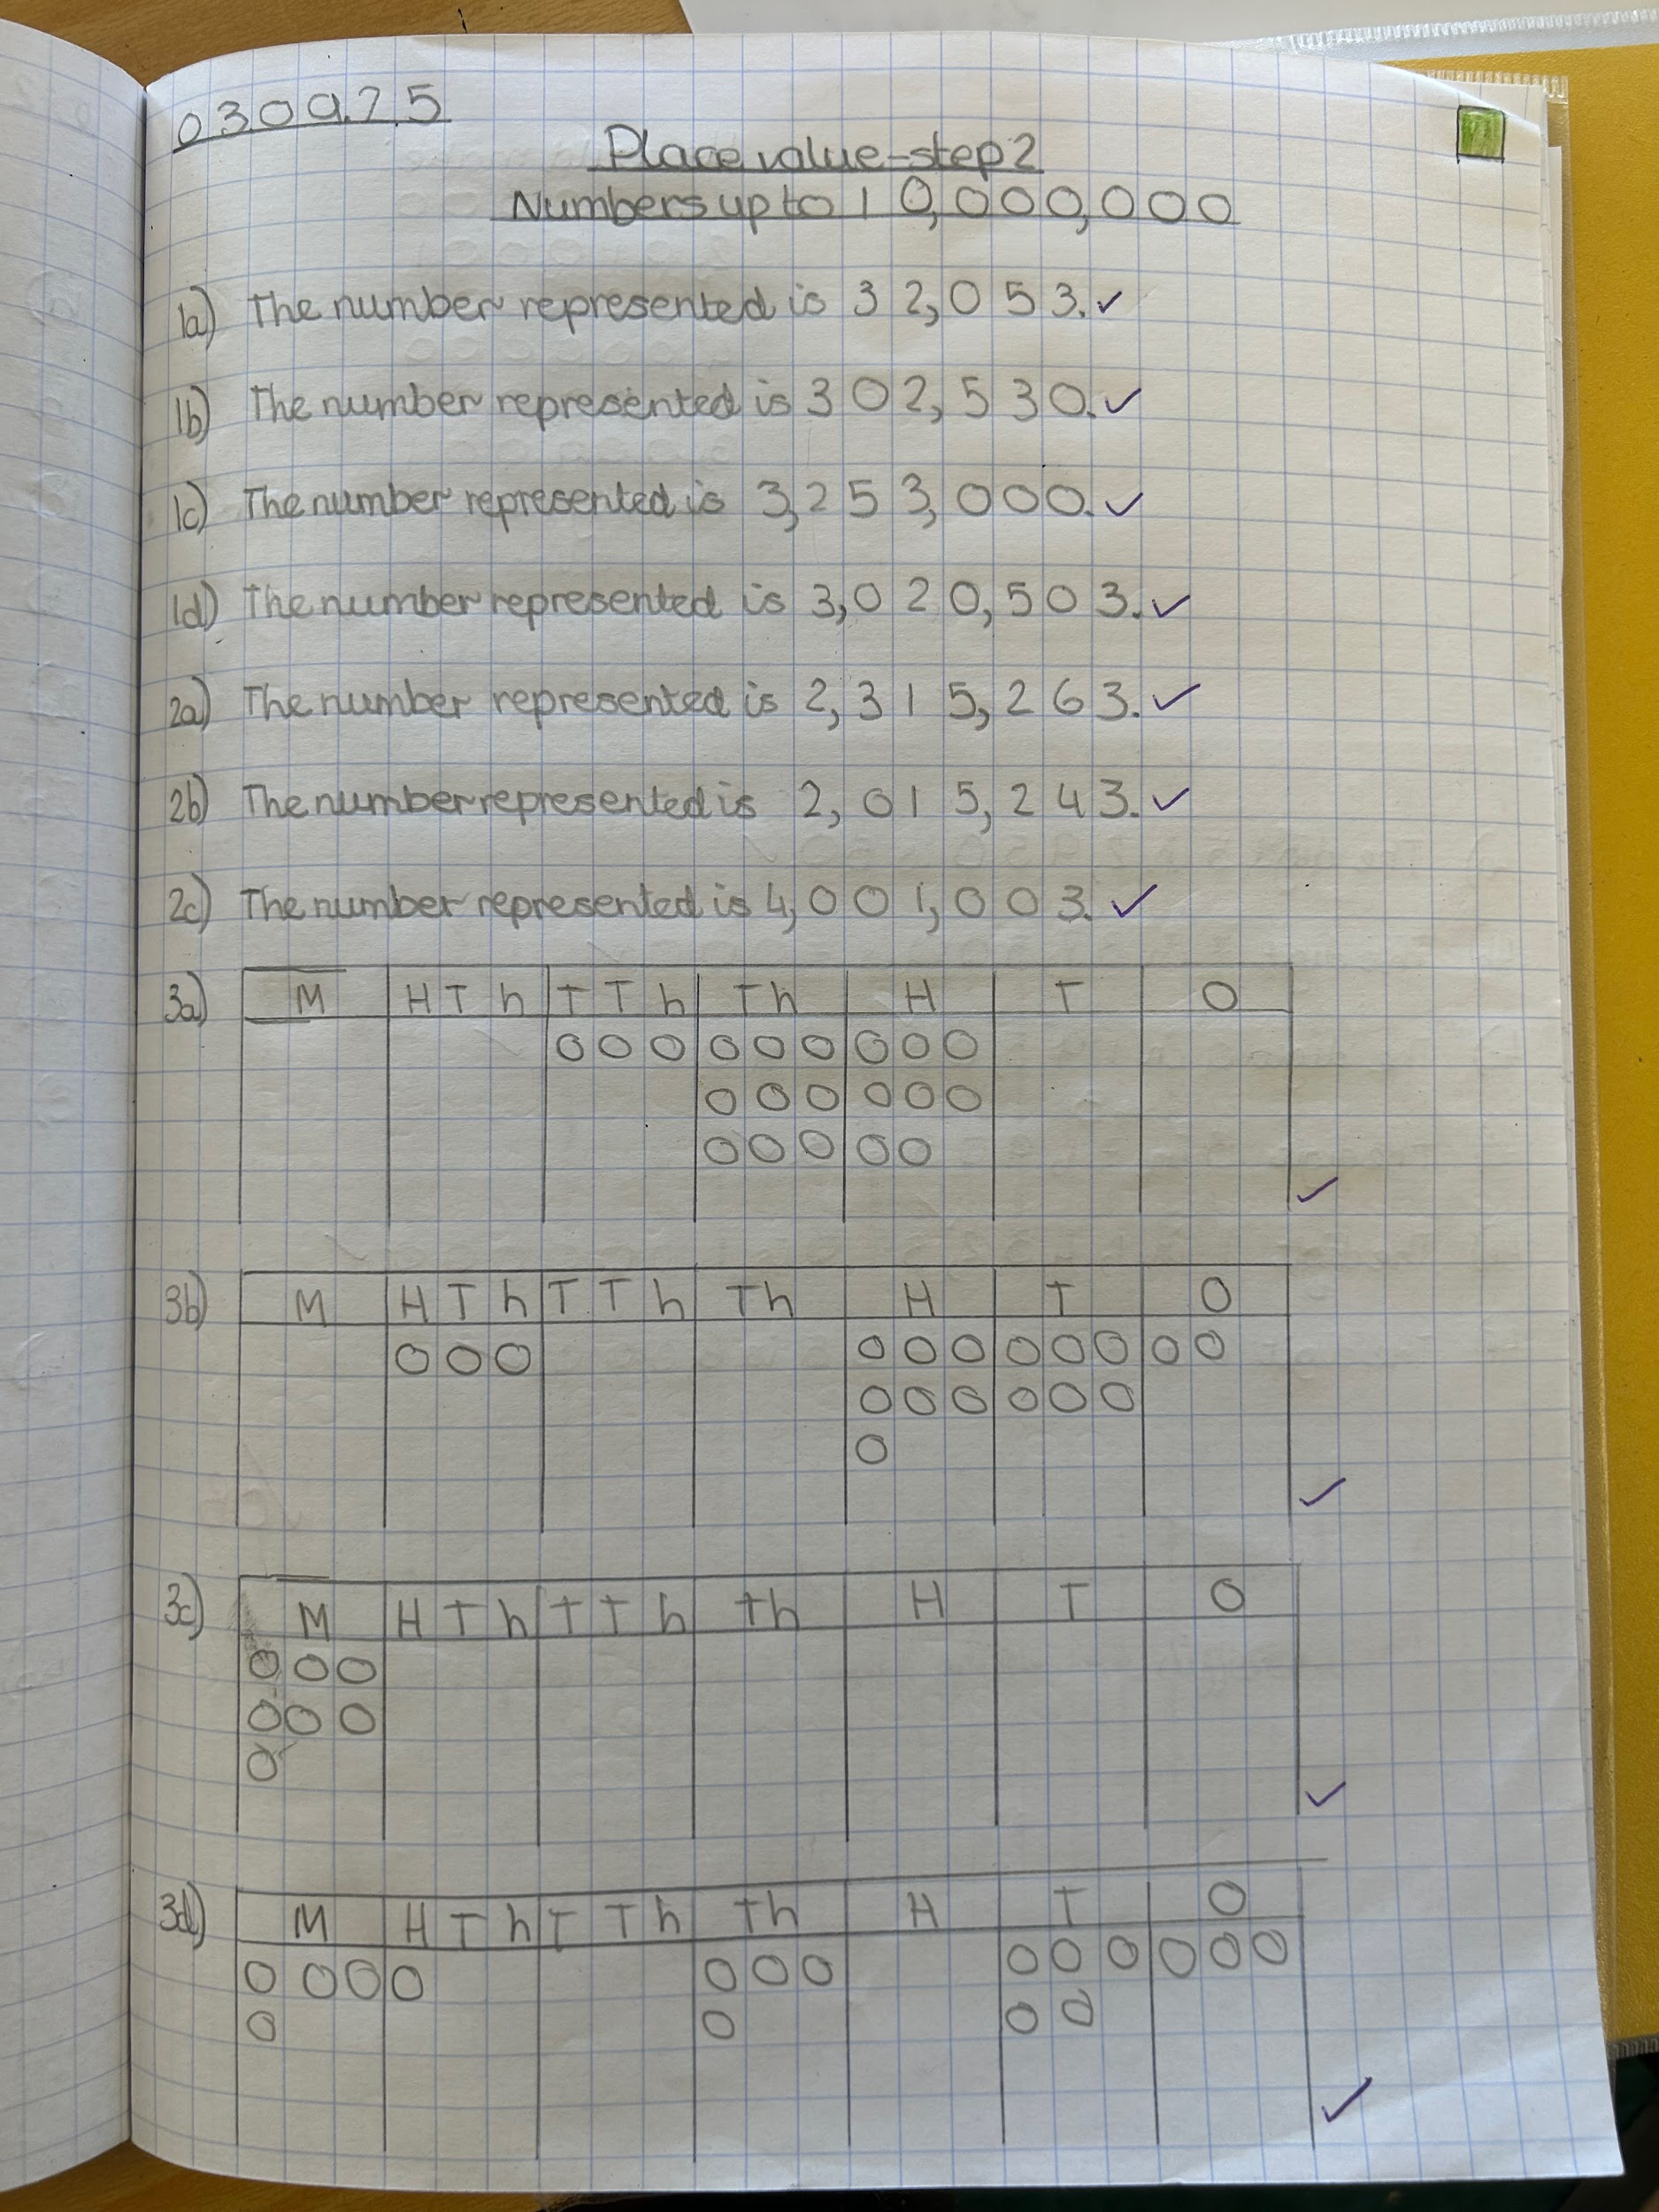 03.09.25
Place value-step 2
Numbers up to 10,000,000
1a) The number represented is 32,053.
1b) The number represented is 302,530.
1c) The number represented is 3,253,000.
1d) The number represented is 3,020,503.
2a) The number represented is 2,315,263.
2b) The number represented is 2,015,243.
2c) The number represented is 4,001,003.
3a) M HTh TTh Th H T O
3b) M HTh TTh Th H T O
3c) M HTh TTh Th H T O
3d) M HTh TTh Th H T O